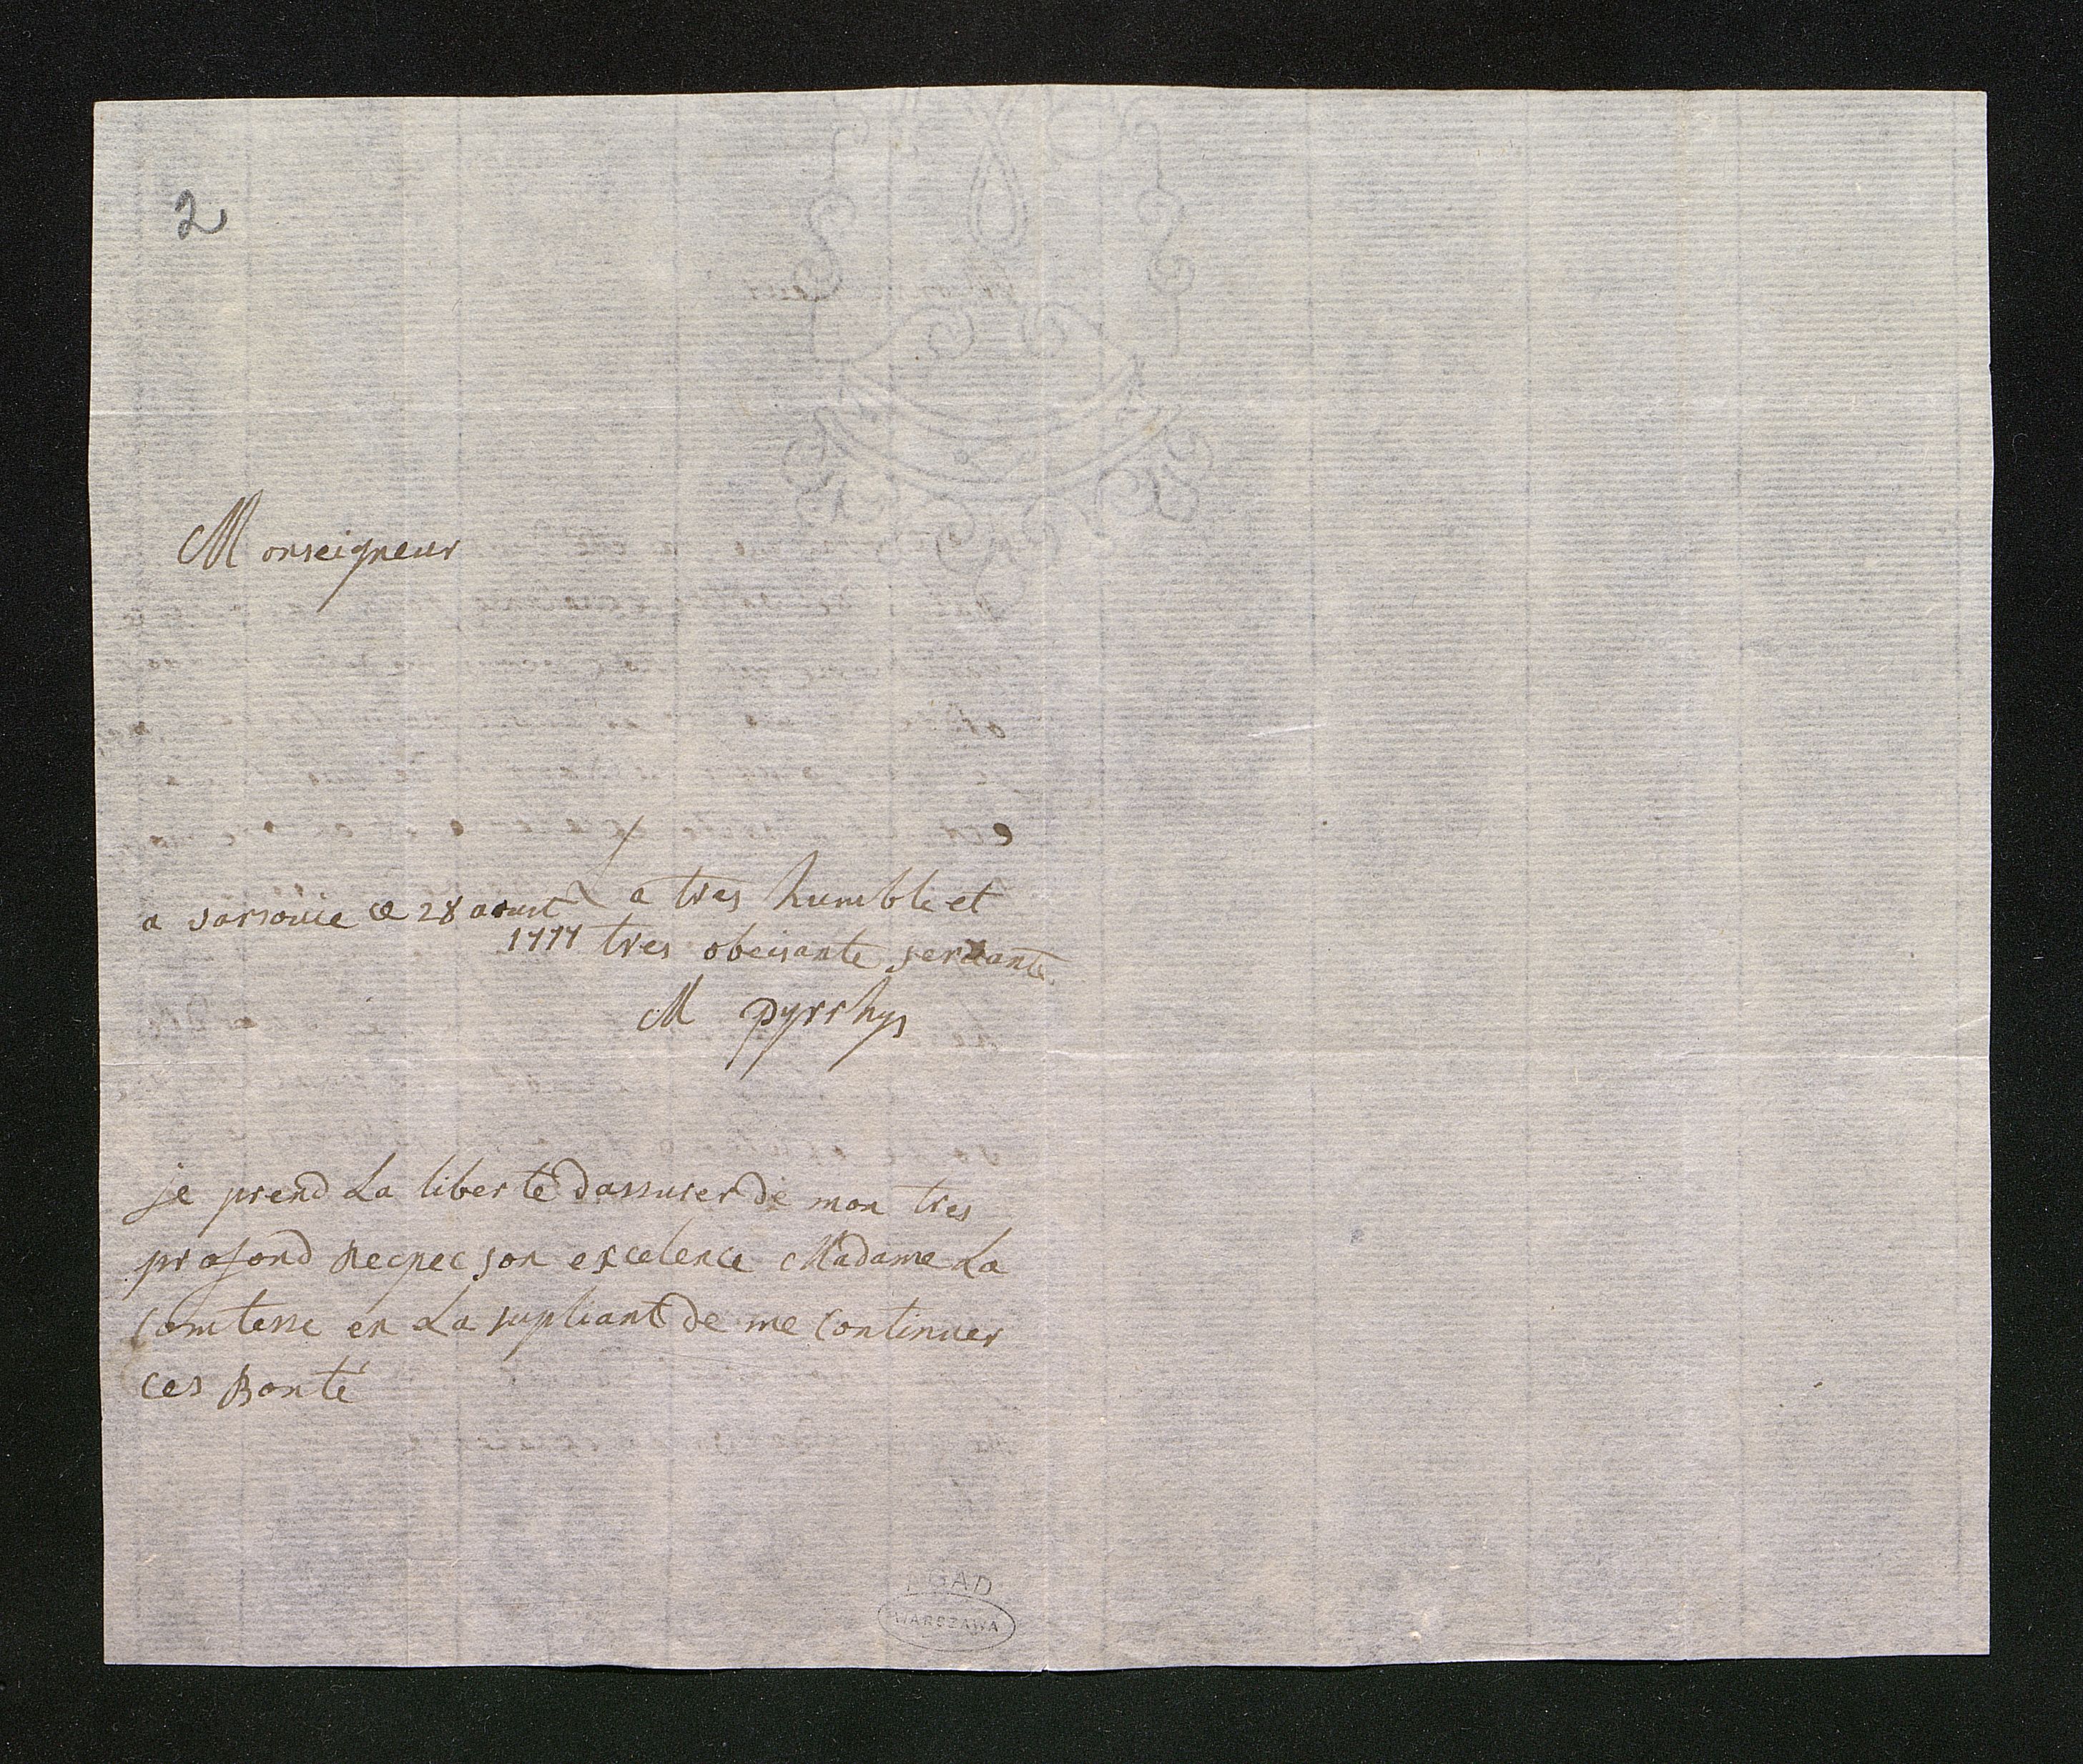 2
Monseigneur
La tres humble et
a varsovie ce 28 aoust
1777 tres obeisante servante
M pyrrhys
je prend La liberté dassurer de mon tres
profond Recpec son excelence Madame La
Comtesse en La supliant de me Continuer
ces Bonté
AGAD
WARSZAWA